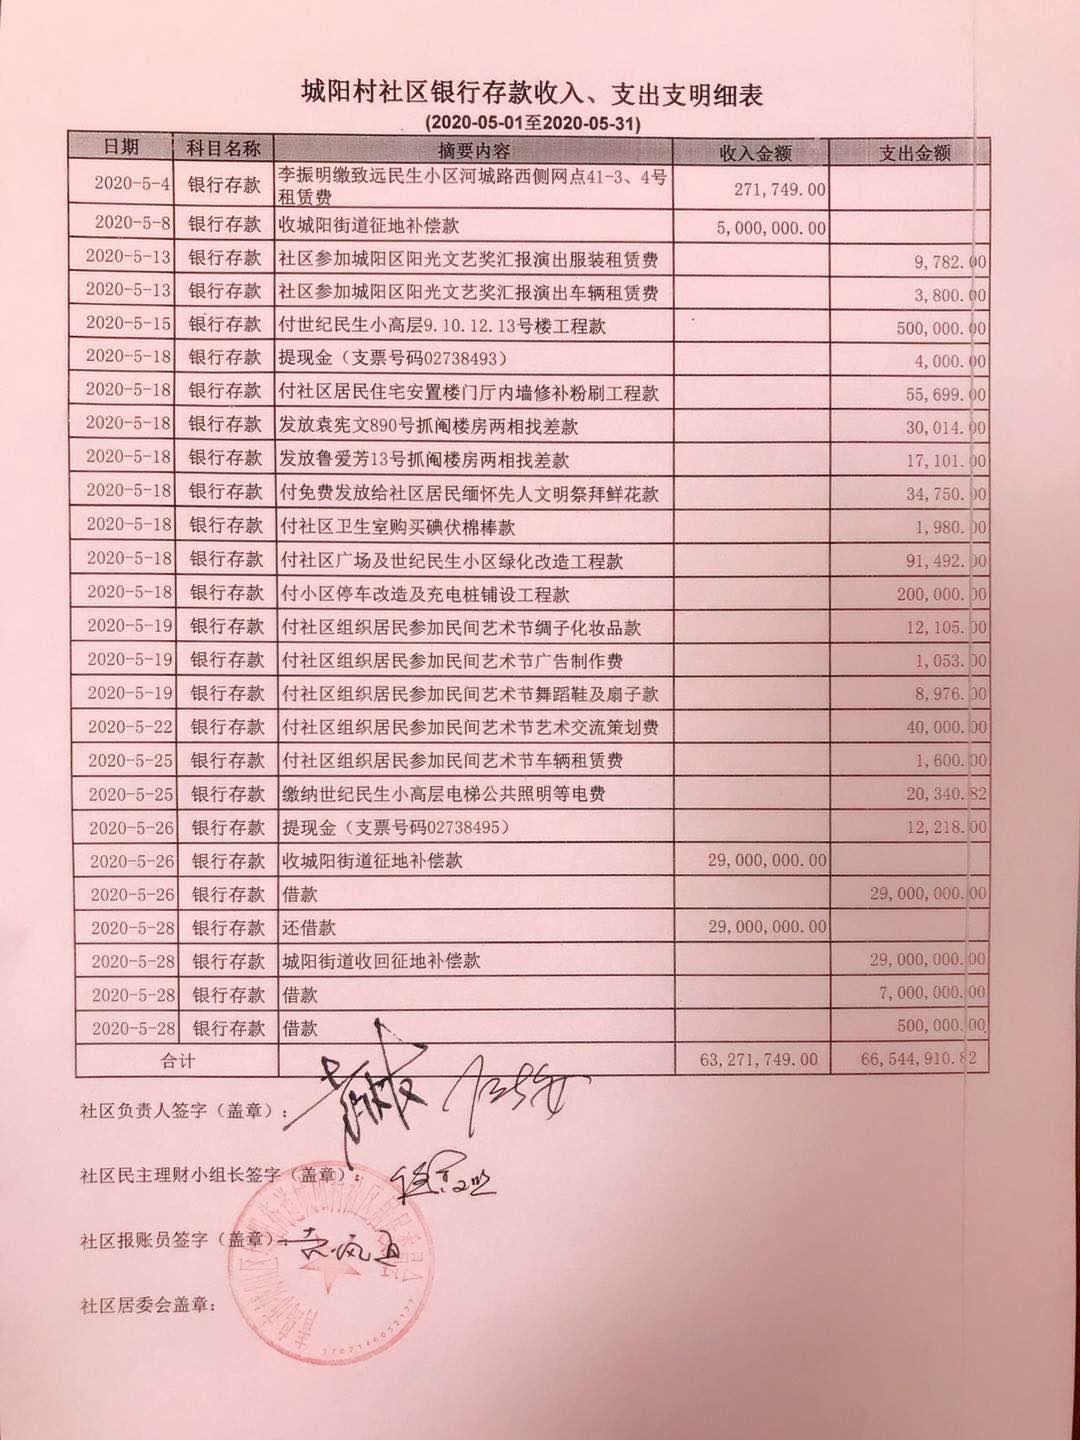 城阳村社区银行存款收入、支出支明细表
(2020-05-01至2020-05-31)
日期 科目名称 摘要内容 收入金额 支出金额
2020-5-4 银行存款 李振明缴致远民生小区河城路西侧网点41-3、4号租赁费 271,749.00
2020-5-8 银行存款 收城阳街道征地补偿款 5,000,000.00
2020-5-13 银行存款 社区参加城阳区阳光文艺奖汇报演出服装租赁费 9,782.00
2020-5-13 银行存款 社区参加城阳区阳光文艺奖汇报演出车辆租赁费 3,800.00
2020-5-15 银行存款 付世纪民生小高层9.10.12.13号楼工程款 500,000.00
2020-5-18 银行存款 提现金（支票号码02738493） 4,000.00
2020-5-18 银行存款 付社区居民住宅安置楼门厅内墙修补粉刷工程款 55,699.00
2020-5-18 银行存款 发放袁宪文890号抓阄楼房两相找差款 30,014.00
2020-5-18 银行存款 发放鲁爱芳13号抓阄楼房两相找差款 17,101.00
2020-5-18 银行存款 付免费发放给社区居民缅怀先人文明祭拜鲜花款 34,750.00
2020-5-18 银行存款 付社区卫生室购买碘伏棉棒款 1,980.00
2020-5-18 银行存款 付社区广场及世纪民生小区绿化改造工程款 91,492.00
2020-5-18 银行存款 付小区停车改造及充电桩铺设工程款 200,000.00
2020-5-19 银行存款 付社区组织居民参加民间艺术节绸子化妆品款 12,105.00
2020-5-19 银行存款 付社区组织居民参加民间艺术节广告制作费 1,053.00
2020-5-19 银行存款 付社区组织居民参加民间艺术节舞蹈鞋及扇子款 8,976.00
2020-5-22 银行存款 付社区组织居民参加民间艺术节艺术交流策划费 40,000.00
2020-5-25 银行存款 付社区组织居民参加民间艺术节车辆租赁费 1,600.00
2020-5-25 银行存款 缴纳世纪民生小高层电梯公共照明等电费 20,340.82
2020-5-26 银行存款 提现金（支票号码02738495） 12,218.00
2020-5-26 银行存款 收城阳街道征地补偿款 29,000,000.00
2020-5-26 银行存款 借款 29,000,000.00
2020-5-28 银行存款 还借款 29,000,000.00
2020-5-28 银行存款 城阳街道收回征地补偿款 29,000,000.00
2020-5-28 银行存款 借款 7,000,000.00
2020-5-28 银行存款 借款 500,000.00
合计 63,271,749.00 66,544,910.82
社区负责人签字（盖章）：
社区民主理财小组长签字（盖章）：
社区报账员签字（盖章）：
社区居委会盖章：